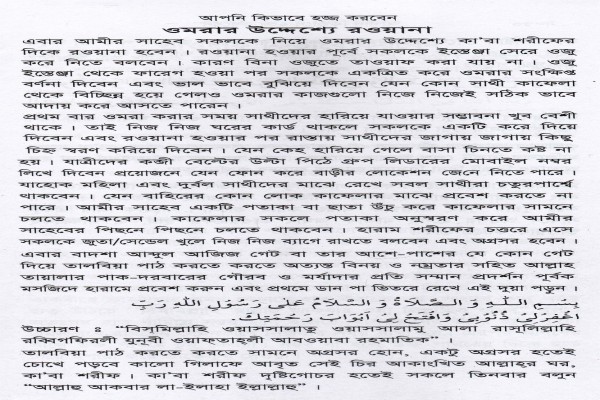 আপনি কিভাবে হজ্জ করবেন
ওমরার উদ্দেশ্যে রওয়ানা
এবার আমীর সাহেব সকলকে নিয়ে ওমরার উদ্দেশ্যে কা'বা শরীফের
দিকে রওয়ানা হবেন । রওয়ানা হওয়ার পূর্বে সকলকে ইস্তেঞ্জা সেরে ওজু
করে নিতে বলবেন । কারণ বিনা ওজুতে তাওয়াফ করা যায় না । ওজু
ইস্তেঞ্জা থেকে ফারেগ হওয়া পর সকলকে একত্রিত করে ওমরার সংক্ষিপ্ত
বর্ণনা দিবেন এবং ভাল ভাবে বুঝিয়ে দিবেন যেন কোন সাথী কাফেলা
থেকে বিচ্ছিন্ন হয়ে গেলেও ওমরার কাজগুলো নিজে নিজেই সঠিক ভাবে
আদায় করে আসতে পারেন ।
প্রথম বার ওমরা করার সময় সাথীদের হারিয়ে যাওয়ার সম্ভাবনা খুব বেশী
থাকে । তাই নিজ নিজ ঘরের কার্ড থাকলে সকলকে একটি করে দিয়ে
দিবেন এবং রওয়ানা হওয়ার পর রাস্তায় সাথীদের জাগায় জাগায় কিছু
চিহ্ন স্মরণ করিয়ে দিবেন । যেন কেহ হারিয়ে গেলে বাসা চিনতে কষ্ট না
হয় । যাত্রীদের কব্জী বেল্টের উল্টা পিঠে গ্রুপ লিডারের মোবাইল নম্বর
লিখে দিবেন প্রয়োজনে যেন ফোন করে বাড়ীর লোকেশন জেনে নিতে পারে ।
যাহোক মহিলা এবং দুর্বল সাথীদের মাঝে রেখে সবল সাথীরা চতুরপার্শ্বে
থাকবেন । যেন বাহিরের কোন লোক কাফেলার মাঝে প্রবেশ করতে না
পারে । আমীর সাহেব একটি পতাকা বা ছাতা উঁচু করে কাফেলার সামনে
চলতে থাকবেন । কাফেলার সকলে পতাকা অনুস্বরণ করে আমীর
সাহেবের পিছনে পিছনে চলতে থাকবেন । হারাম শরীফের চত্তরে এসে
সকলকে জুতা/সেন্ডেল খুলে নিজ নিজ ব্যাগে রাখতে বলবেন এবং অগ্রসর হবেন ।
এবার বাদশা আব্দুল আজিজ গেট বা তার আশে-পাশের যে কোন গেট
দিয়ে তালবিয়া পাঠ করতে করতে অত্যন্ত বিনয় ও নম্রতার সহিত আল্লাহ
তায়ালার পাক-দরবারের গৌরব ও মর্যাদার প্রতি সম্মান প্রদর্শন পূর্বক
মসজিদে হারামে প্রবেশ করুন এবং প্রথমে ডান পা ভিতরে রেখে এই দুয়া পড়ুন ।
بِسْمِ اللَّهِ وَ الصَّلَاةُ وَ السَّلَامُ عَلَى رَسُوْلِ اللهِ رَبِّ
اغْفِرْلِيْ ذُنُوْبِيْ وَافْتَحْ لِيْ اَبْوَابَ رَحْمَتِكَ.
উচ্চারণ ঃ “বিস্‌মিল্লাহি ওয়াসসালাতু ওয়াসসালামু আলা রাসূলিল্লাহি
রব্বিগফিরলী যুনুবী ওয়াফ্‌তাহ্‌লী আবওয়াবা রহমাতিক” ।
তালবিয়া পাঠ করতে করতে সামনে অগ্রসর হোন, একটু অগ্রসর হতেই
চোখে পড়বে কালো গিলাফে আবৃত সেই চির আকাংখিত আল্লাহর ঘর,
কা'বা শরীফ । কা'বা শরীফ দৃষ্টিগোচর হতেই সকলে তিনবার বলুন
“আল্লাহু আকবার লা-ইলাহা ইল্লাল্লাহু” ।